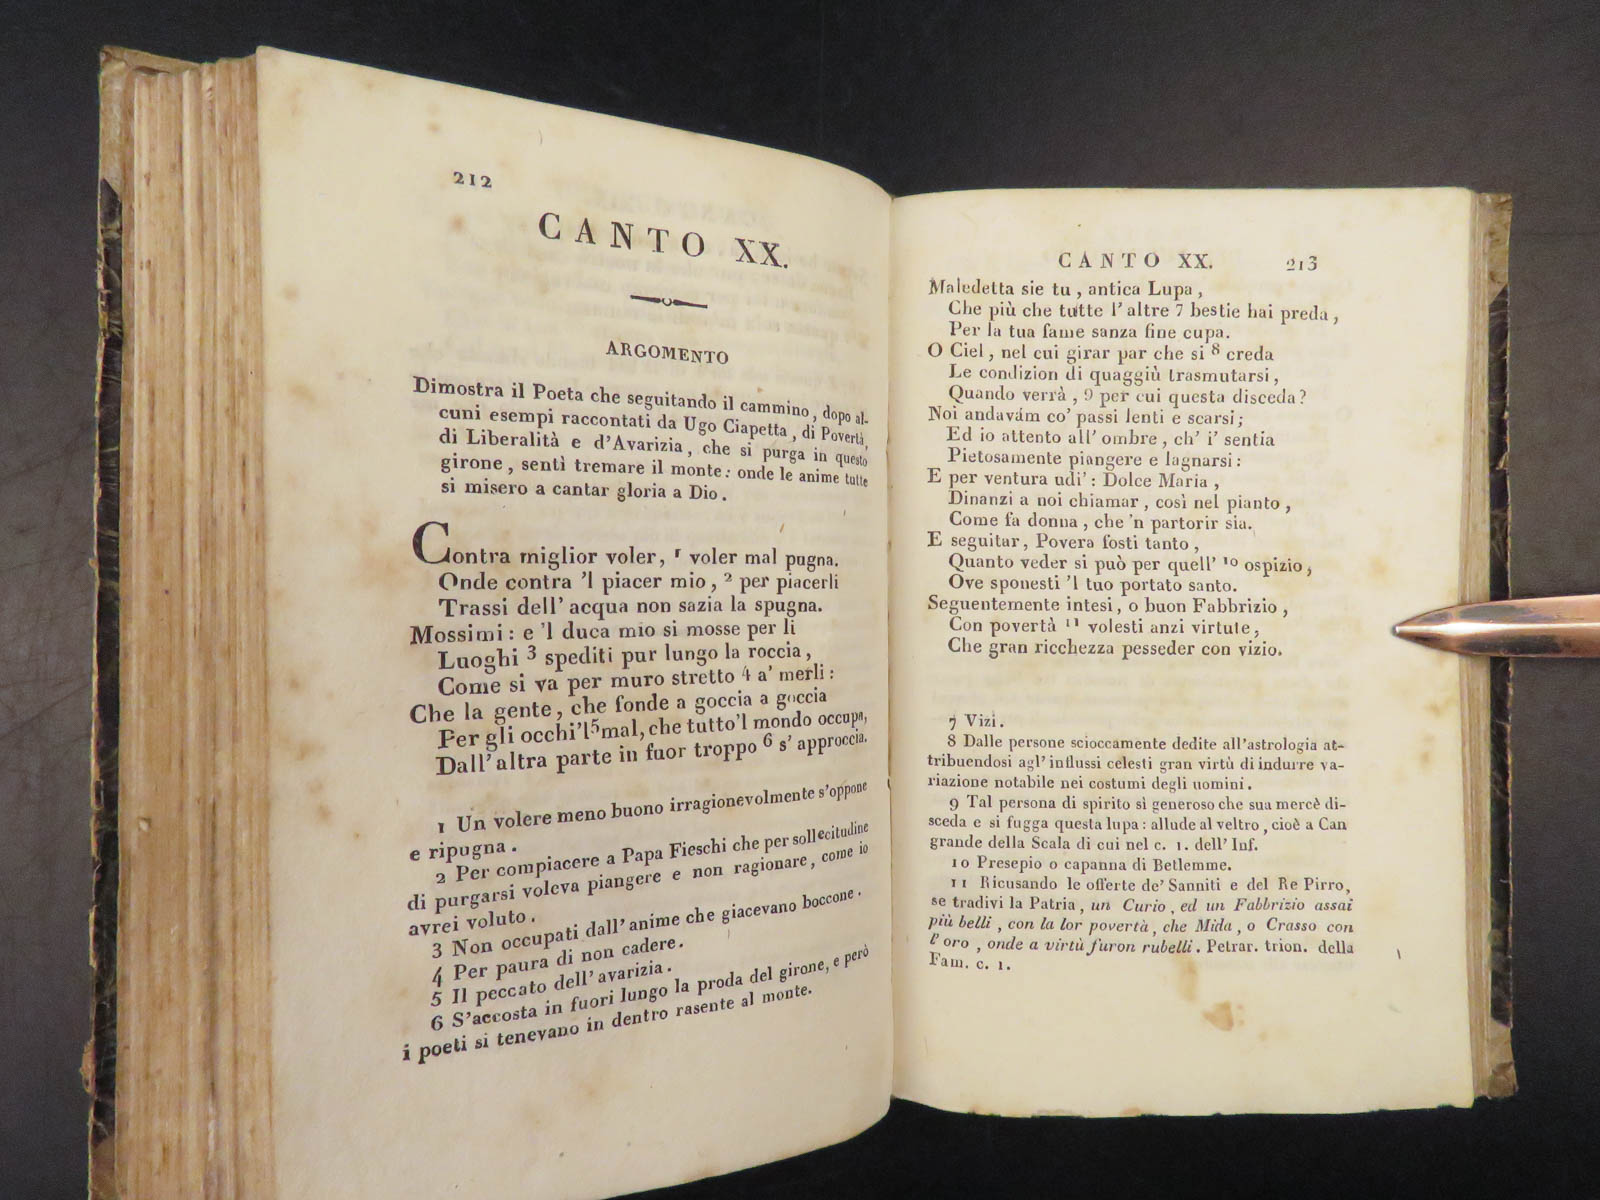 212
CANTO XX.
ARGOMENTO
Dimostra il Poeta che seguitando il cammino, dopo al-
cuni esempi raccontati da Ugo Ciapetta, di Povertà,
di Liberalità e d'Avarizia, che si purga in questo
girone, sentì tremare il monte: onde le anime tutte
si misero a cantar gloria a Dio.
Contra miglior voler, 1 voler mal pugna.
Onde contra 'l piacer mio, 2 per piacerli
Trassi dell' acqua non sazia la spugna.
Mossimi: e 'l duca mio si mosse per li
Luoghi 3 spediti pur lungo la roccia,
Come si va per muro stretto 4 a' merli:
Che la gente, che fonde a goccia a goccia
Per gli occhi 'l 5 mal, che tutto 'l mondo occupa,
Dall' altra parte in fuor troppo 6 s' approccia.
1 Un volere meno buono irragionevolmente s'oppone
e ripugna.
2 Per compiacere a Papa Fieschi che per sollecitudine
di purgarsi voleva piangere e non ragionare, come io
avrei voluto.
3 Non occupati dall' anime che giacevano boccone.
4 Per paura di non cadere.
5 Il peccato dell' avarizia.
6 S'accosta in fuori lungo la proda del girone, e però
i poeti si tenevano in dentro rasente al monte.
CANTO XX. 213
Maledetta sie tu, antica Lupa,
Che più che tutte l' altre 7 bestie hai preda,
Per la tua fame sanza fine cupa.
O Ciel, nel cui girar par che si 8 creda
Le condizion di quaggiù trasmutarsi,
Quando verrà, 9 per cui questa disceda?
Noi andavám co' passi lenti e scarsi;
Ed io attento all' ombre, ch' i' sentia
Pietosamente piangere e lagnarsi:
E per ventura udi': Dolce Maria,
Dinanzi a noi chiamar, così nel pianto,
Come fa donna, che 'n partorir sia.
E seguitar, Povera fosti tanto,
Quanto veder si può per quell' 10 ospizio,
Ove sponesti 'l tuo portato santo.
Seguentemente intesi, o buon Fabbrizio,
Con povertà 11 volesti anzi virtute,
Che gran ricchezza posseder con vizio.
7 Vizi.
8 Dalle persone scioccamente dedite all'astrologia at-
tribuendosi agl' influssi celesti gran virtù di indurre va-
riazione notabile nei costumi degli uomini.
9 Tal persona di spirito sì generoso che sua mercè di-
sceda e si fugga questa lupa: allude al veltro, cioè a Can
grande della Scala di cui nel c. 1. dell' Inf.
10 Presepio o capanna di Betlemme.
11 Ricusando le offerte de' Sanniti e del Re Pirro,
se tradivi la Patria, un Curio, ed un Fabbrizio assai
più belli, con la lor povertà, che Mida, o Crasso con
l'oro, onde a virtù furon rubelli. Petrar. trion. della
Fam. c. 1.